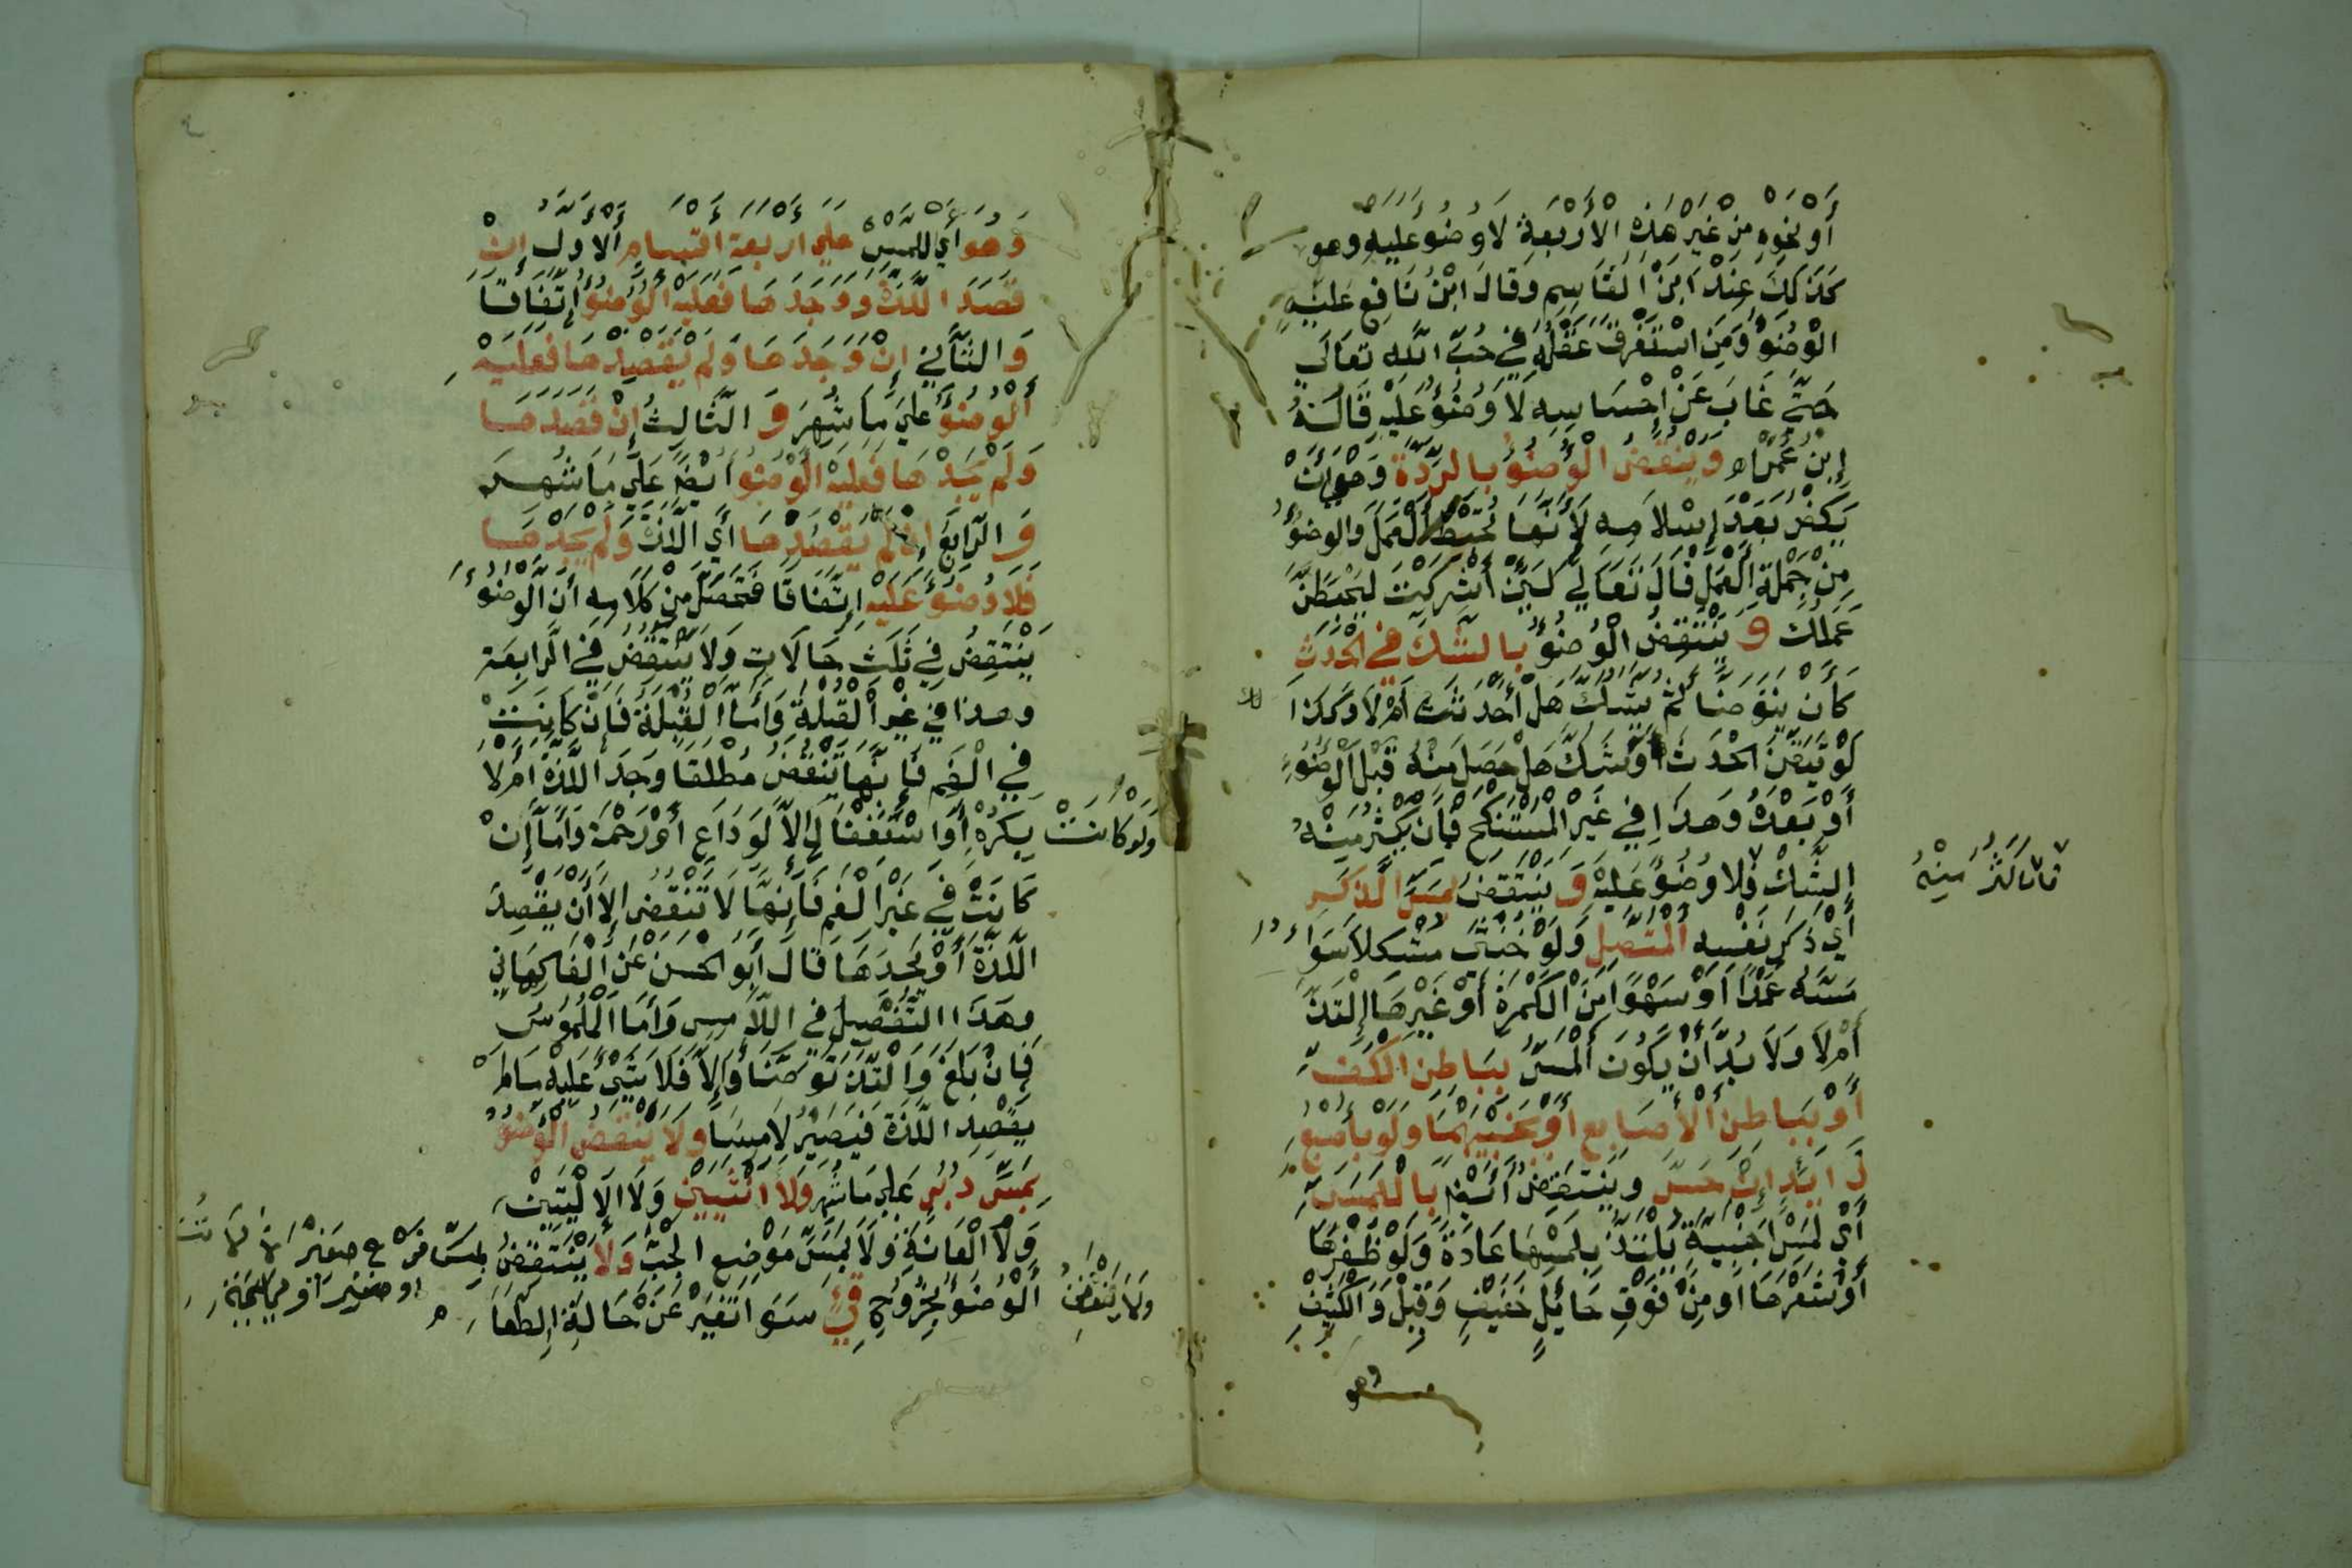 أَوْ نَحْوِهِ مِنْ غَيْرِ هَذِهِ الْأَرْبَعَةِ لَا وُضُوءَ عليهِ وهو
كَذَلِكَ عِنْدَ ابْنِ الْقَاسِمِ وَقَالَ ابْنُ نَافِعٍ عَلَيْهِ
الْوُضُوءُ وَمَنِ اسْتَغْرَقَ عَقْلُهُ فِي حُبِّ اللَّهِ تَعَالَى
حَتَّى غَابَ عَنْ إِحْسَاسِهِ لَا وُضُوءَ عَلَيْهِ قَالَهُ
إِبْنُ عُمَرَ اه وَيَنْقُضُ الْوُضُوءُ بِالرِّدَّةِ وَهِيَ أَنْ
يَكْفُرَ بَعْدَ إِسْلَامِهِ لِأَنَّهَا تُحْبِطُ الْعَمَلَ وَالوضُوءُ
مِنْ جُمْلَةِ الْعَمَلِ قَالَ تَعَالَى لَئِنْ أَشْرَكْتَ لَيَحْبَطَنَّ
عَمَلُكَ وَيَنْتَقِضُ الْوُضُوءُ بِالشَّكِّ فِي الْحَدَثِ
كَأَنْ يَتَوَضَّأَ ثُمَّ يَشُكَّ هَلْ أَحْدَثَ أَمْ لَا وَكَذَا
لَوْ تَيَقَّنَ الْحَدَثَ أَوْ شَكَّ هَلْ حَصَلَ مِنْهُ قَبْلَ الْوُضُوءِ
أَوْ بَعْدَهُ وَهَذَا فِي غَيْرِ الْمُسْتَنْكِحِ فَإِنْ يَكْثُرْ مِنْهُ
فان كثر مِنْهُ
الشَّكُّ فَلَا وُضُوءَ عَلَيْهِ وَيَنْتَقِضُ بِمَسِّ الذَّكَرِ
أَيْ ذَكَرِ نَفْسِهِ الْمُتَّصِلِ وَلَوْ خُنْثَى مُشْكِلًا سَوَاءٌ
مَسَّهُ عَمْدًا أَوْ سَهْوًا مِنَ الْكَمَرَةِ أَوْ غَيْرِهَا إِلْتَذَّ
أَمْ لَا وَلَا بُدَّ أَنْ يَكُونَ الْمَسُّ بِبَاطِنِ الْكَفِّ
أَوْ بِبَاطِنِ الْأَصَابِعِ أَوْ بِجَنْبَيْهِمَا وَلَوْ بِأُصْبُعٍ
زَايِدٍ إِنْ حَسَّ وَيَنْتَقِضُ أَيْضًا بِاللَّمْسِ
أَيْ لَمْسِ أَجْنَبِيَّةٍ يَلْتَذُّ بِلَمْسِهَا عَادَةً وَلَوْ ظُفْرِهَا
أَوْ شَعْرِهَا أَو مِنْ فَوْقِ حَائِلٍ خَفِيفٍ وَقِيلَ وَالْكَثِيفِ
وهو
وَهُوَ أَيِ اللمْسُ عَلَى أربعة أقسامٍ الأول إنْ
قَصَدَ اللَّذَّةَ وَوَجَدَهَا فَعَلَيْهِ الْوُضُوءُ إِتِّفَاقًا
وَالثَّانِي إِنْ وَجَدَهَا وَلَمْ يَقْصِدْهَا فَعَلَيْهِ
الْوُضُوءُ عَلَى مَا شُهِرَ وَالثَّالِثُ إِنْ قَصَدَهَا
وَلَمْ يَجِدْهَا فَعَلَيْهِ الْوُضُوءُ أَيْضًا عَلَى مَا شُهِرَ
وَالرَّابِعُ إِنْ لَمْ يَقْصِدْهَا أَيِ اللَّذَّةَ وَلَمْ يَجِدْهَا
فَلَا وُضُوءَ عَلَيْهِ اتِّفَاقًا فَتَحَصَّلَ مِنْ كَلَامِهِ أَنَّ الْوُضُوءَ
يَنْتَقِضُ فِي ثَلَثِ حَالَاتٍ وَلَا يَنْتَقِضُ فِي الرَّابِعَةِ
وهذا في غَيْرِ الْقُبْلَةِ وَأَمَّا الْقُبْلَةُ فَإِنْ كَانَتْ
فِي الْفَمِ فَإِنَّهَا تَنْقُضُ مُطْلَقًا وَجَدَ اللَّذَّةَ أَمْ لَا
وَلَوْ كَانَتْ بِكُرْهٍ أَوِ اسْتِغْفَالٍ إِلَّا لِوَدَاعٍ أَوْ رَحْمَةٍ وَأَمَّا إِنْ
كَانَتْ فِي غَيْرِ الْفَمِ فَإِنَّهَا لَا تَنْقُضُ إِلَّا أَنْ يَقْصِدَ
اللَّذَّةَ أَوْ يَجِدَهَا قَالَ أَبُو الْحَسَنِ عَنِ الْفَاكِهَانِي
وَهَذَا التَّفْصِيلُ فِي اللَّامِسِ وَأَمَّا الْمَلْمُوسُ
فَإِنْ بَلَغَ وَالْتَذَّ تَوَضَّأَ وَإِلَّا فَلَا شَيْءَ عَلَيْهِ مَا لَمْ
يَقْصِدِ اللَّذَّةَ فَيَصِيرُ لَامِسًا وَلَا يَنْقُضُ الْوُضُوءُ
بِمَسِّ دُبُرٍ عَلَى مَا شُهِرَ وَلَا أُنْثَيَيْنِ وَلَا الْأَلْيَتَيْنِ
وَلَا الْعَانَةِ وَلَا بِمَسِّ مَوْضِعِ الْجَبِّ وَلَا يَنْتَقِضُ بِمَسِّ فَرْجِ صَغِيرٍ
أَوْ صَغِيرَةٍ أَوْ بَهِيمَةٍ
وَلَا يَنْتَقِضُ الْوُضُوءُ بِخُرُوجِ قَيْءٍ سَوَاءٌ تَغَيَّرَ عَنْ حَالَةِ الطَّعَامِ